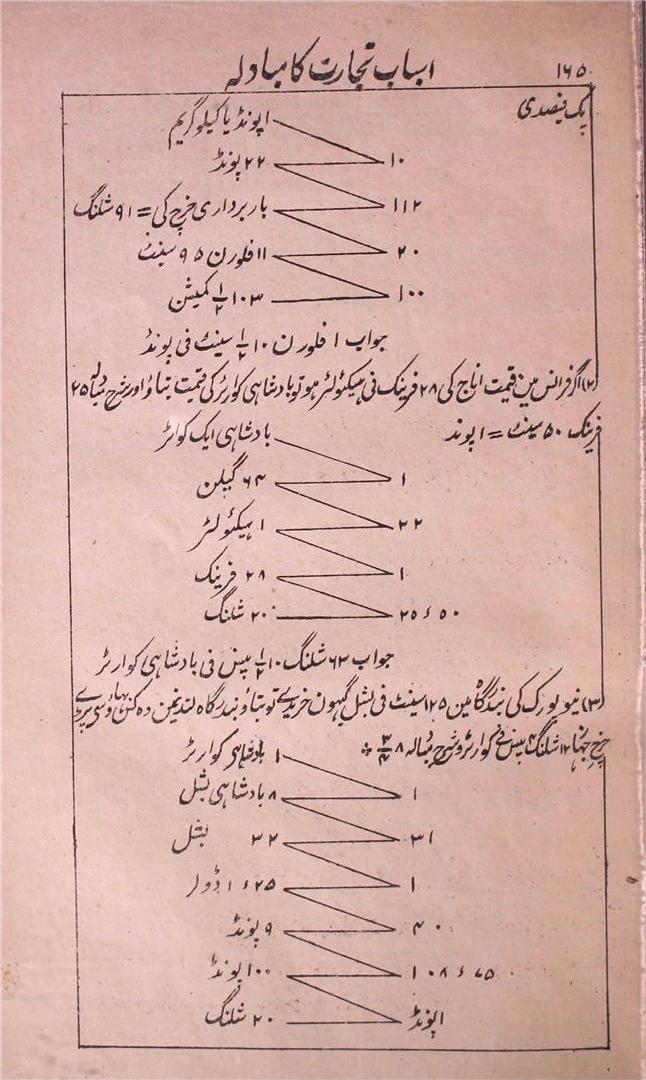 ۱۶۵ اسباب تجارت کا مبادلہ
یک فیصدی
۱ پونڈ یا کیلوگریم
۱۰ ۲۲ پونڈ
۱۱۲ باربرداری خرچ کی = ۹۱ شلنگ
۲۰ ۱۱ فلورن ۹۵ سینٹ
۱۰۰ ۱۰۳ ۱/۲ کمیشن
جواب ۱ فلورن ۱۰ ۱/۲ سینٹ فی پونڈ
(۲) اگر فرانس مین قیمت اناج کی ۲۸ فرینک فی ہیکٹولٹر ہو تو بادشاہی کوارٹر کی قیمت بتاؤ اور شرح مبادلہ ۲۵
فرینک ۵۰ سینٹ = ۱ پونڈ
بادشاہی ایک کوارٹر
۱ ۶۴ گیلن
۲۲ ۱ ہیکٹولٹر
۱ ۲۸ فرینک
۲۵ء۵۰ ۲۰ شلنگ
جواب ۶۳ شلنگ ۱۰ ۱/۲ پنس فی بادشاہی کوارٹر
(۳) نیویورک کی بندرگاہ مین ۱۲۵ سینٹ فی بشل گیہون خریدے تو بتاؤ بندرگاہ لندن مین وہ کس بہاؤ سے پڑے
خرچ جہاز ۱۲ شلنگ ۴ پنس فی کوارٹر و شرح مبادلہ ۸ ۳/۴
۱ بادشاہی کوارٹر
۱ ۸ بادشاہی بشل
۳۱ ۳۲ بشل
۱ ۱ء۲۵ ڈولر
۴۰ ۹ پونڈ
۱۰۸ء۷۵ ۱۰۰ پونڈ
۱ پونڈ ۲۰ شلنگ